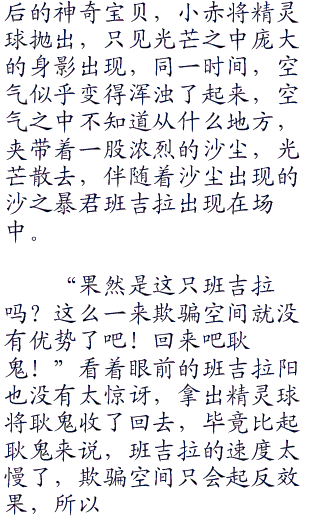 后的神奇宝贝，小赤将精灵
球抛出，只见光芒之中庞大
的身影出现，同一时间，空
气似乎变得浑浊了起来，空
气之中不知道从什么地方，
夹带着一股浓烈的沙尘，光
芒散去，伴随着沙尘出现的
沙之暴君班吉拉出现在场
中。
“果然是这只班吉拉
吗？这么一来欺骗空间就没
有优势了吧！回来吧耿
鬼！”看着眼前的班吉拉阳
也没有太惊讶，拿出精灵球
将耿鬼收了回去，毕竟比起
耿鬼来说，班吉拉的速度太
慢了，欺骗空间只会起反效
果，所以